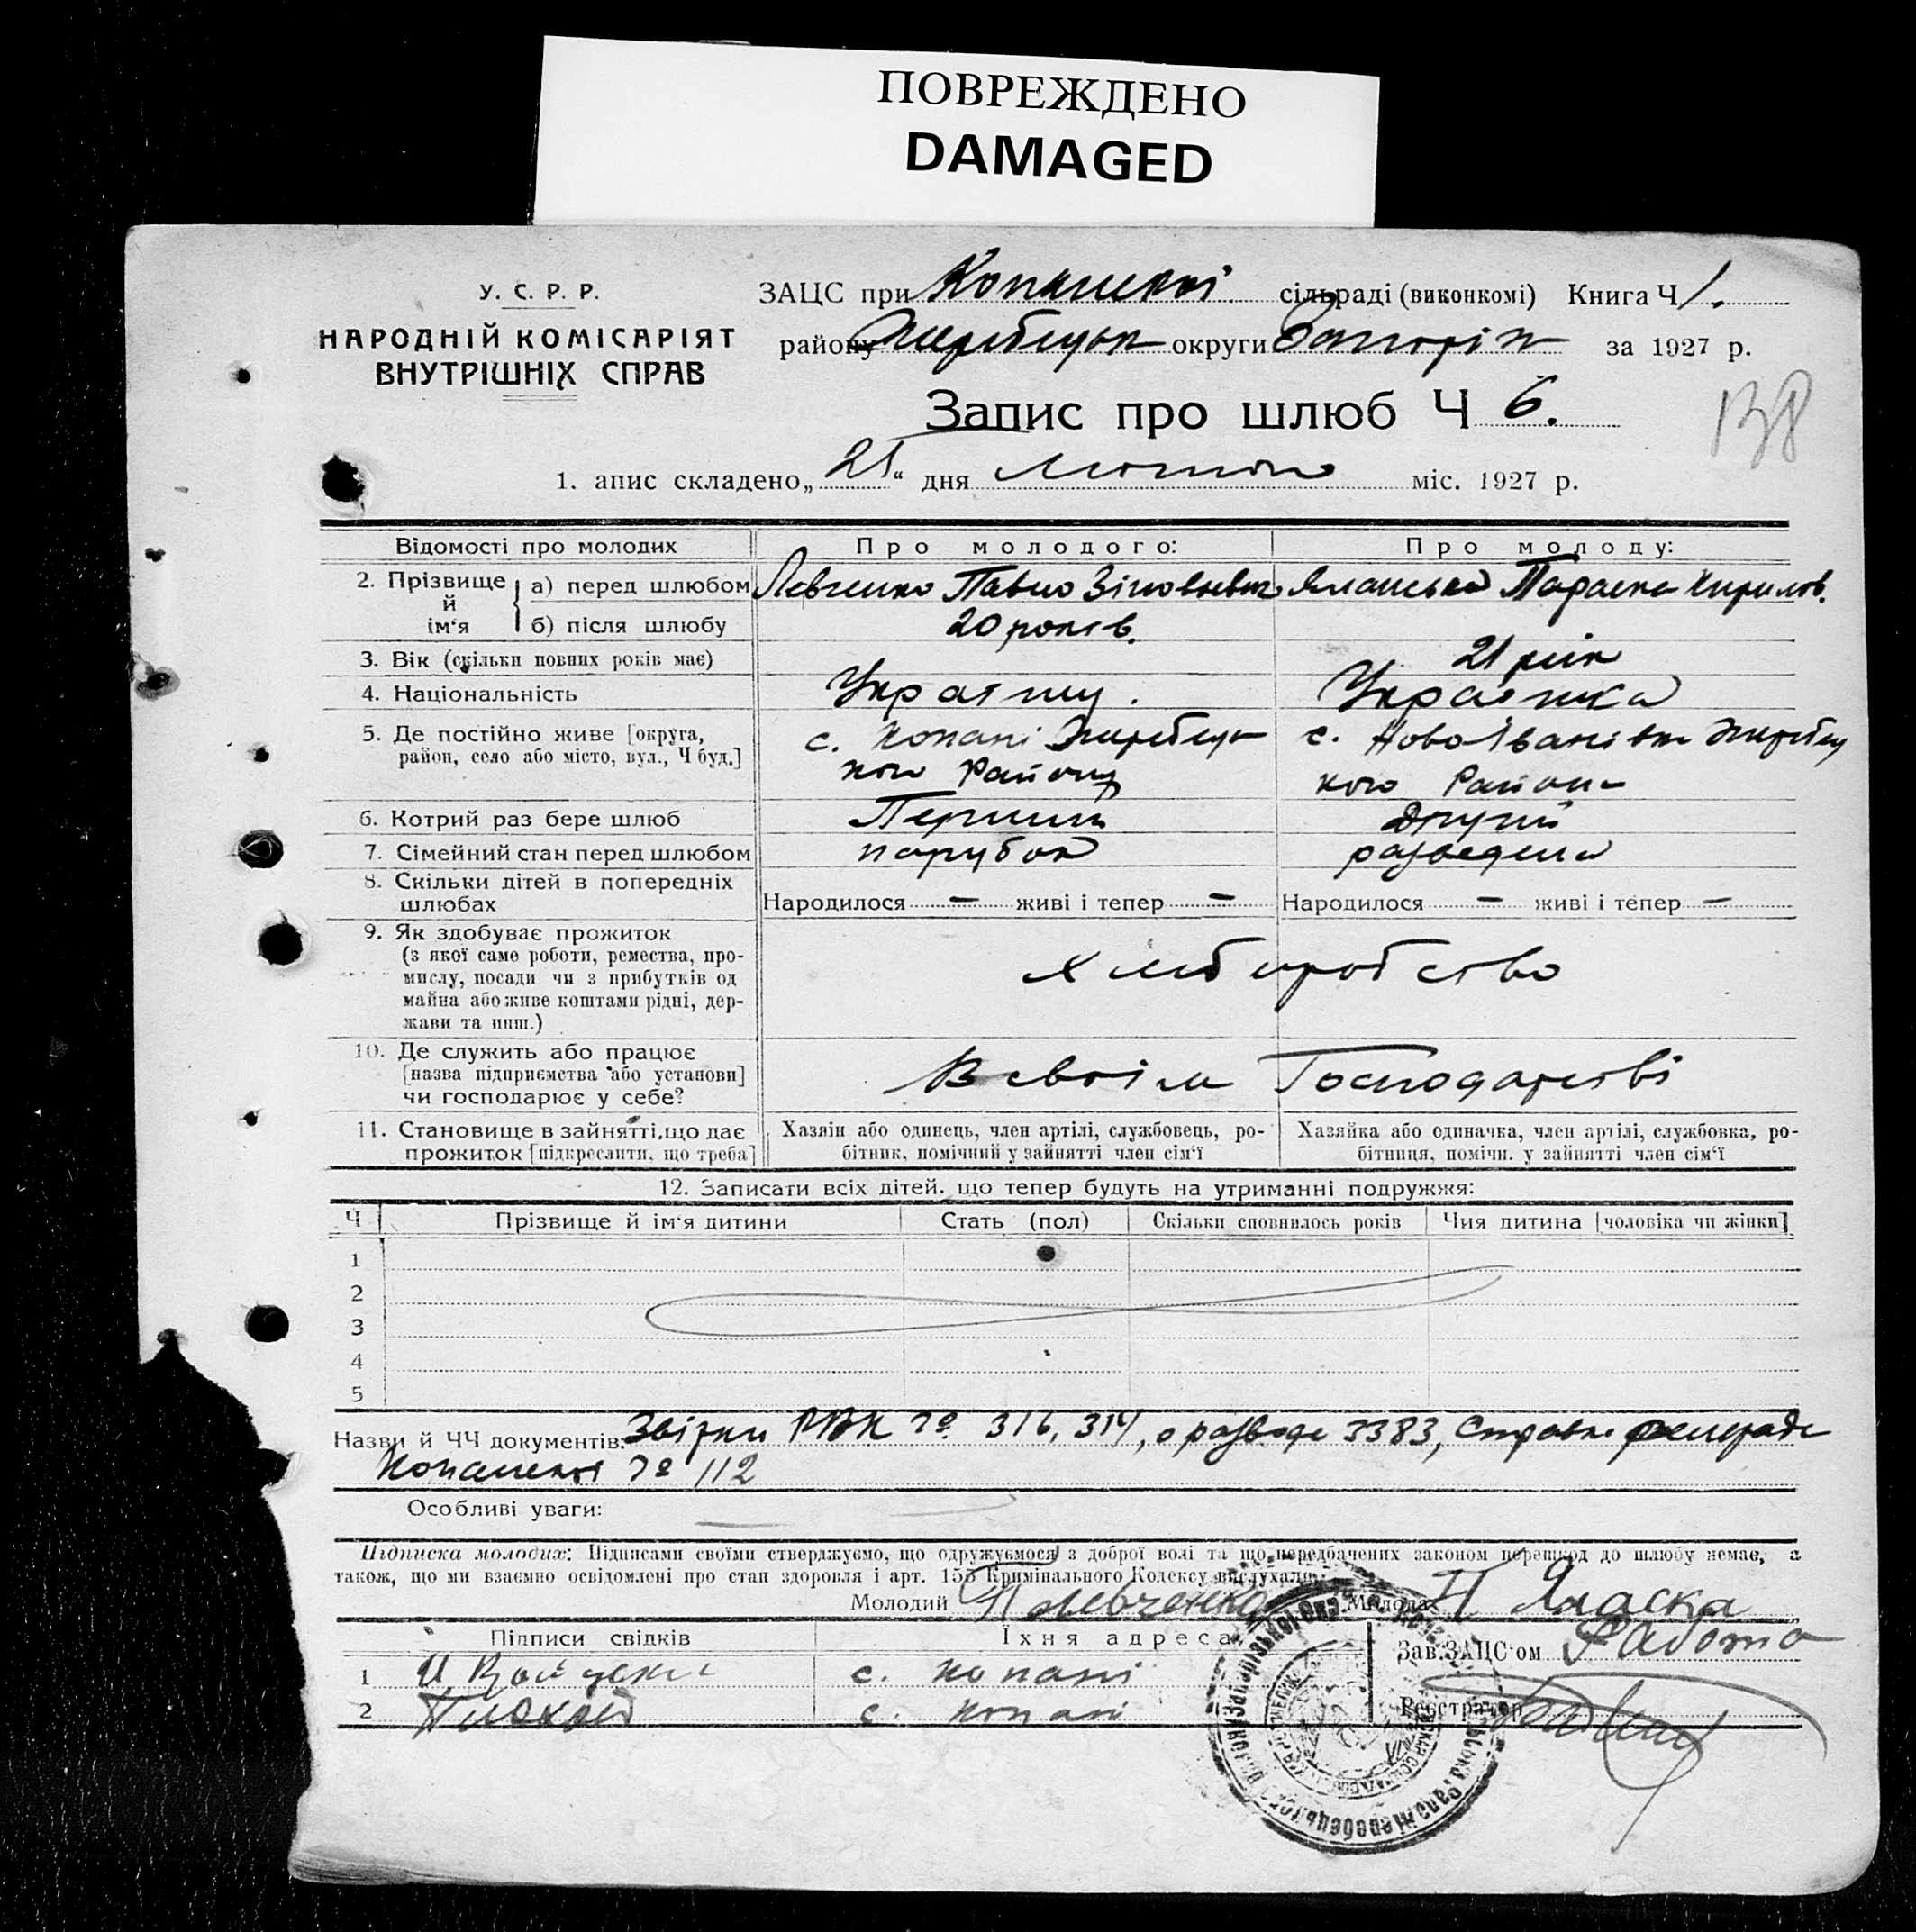 ПОВРЕЖДЕНО
DAMAGED
У. С. Р. Р.
НАРОДНІЙ КОМІСАРІЯТ
ВНУТРІШНІХ СПРАВ
ЗАЦС при Копанської сільраді (виконкомі) Книга Ч 1.
району Жеребецьк округи Запоріж за 1927 р.
Запис про шлюб Ч 6.
138
1. апис складено „21“ дня Лютого міс. 1927 р.
Відомості про молодих Про молодого: Про молоду:
2. Прізвище й ім‘я
а) перед шлюбом Левченко Павло Зіновьевич Яланська Параска Кирилов.
б) після шлюбу
3. Вік (скільки повних років має) 20 років. 21 рік
4. Національність Українц. Українка
5. Де постійно живе [округа, с. Копані Жеребець с. Ново Іванівки Жеребец
район, село або місто, вул., Ч буд.] кого Району кого Району
6. Котрий раз бере шлюб Перший Другий
7. Сімейний стан перед шлюбом парубок разведена
8. Скільки дітей в попередніх
шлюбах Народилося — живі і тепер — Народилося — живі і тепер —
9. Як здобуває прожиток
(з якої саме роботи, ремества, про-
мислу, посади чи з прибутків од
майна або живе коштами рідні, дер-
жави та инш.)
Хліборобство
10. Де служить або працює
[назва підприємства або установи]
чи господарює у себе?
В своім Господарстві
11. Становище в зайнятті, що дає Хазяїн або одинець, член артілі, службовець, ро- Хазяйка або одиначка, член артілі, службовка, ро-
прожиток [підкреслити, що треба] бітник, помічний у зайнятті член сім‘ї бітниця, помічн. у зайнятті член сім‘ї
12. Записати всіх дітей. що тепер будуть на утриманні подружжя:
Ч Прізвище й ім‘я дитини Стать (пол) Скільки сповнилось років Чия дитина [чоловіка чи жінки]
1
2
3
4
5
Назви й ЧЧ документів: Звірки РВК № 316, 314, о разводе 3383, Справка
Копанської № 112
Особливі уваги: —
Підписка молодих: Підписами своїми стверджуємо, що одружуємося з доброї волі та що передбачених законом перешкод до шлюбу немає, а
також, що ми взаємно освідомлені про стан здоровля і арт. 155 Кримінального Кодексу вислухали.
Молодий П Левченко Молода П Яласка
Підписи свідків Їхня адреса Зав. ЗАЦС‘ом Работа
1 с. Копані
2 с. Копані Реєстратор